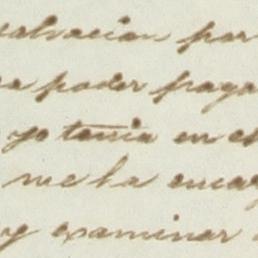 salvacion por
poder paga
yo tenia en e
me la enca
y examinar